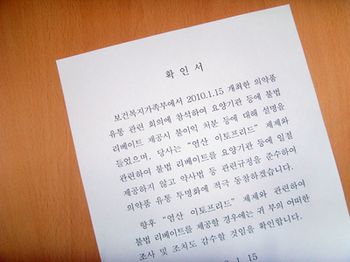 확 인 서
보건복지가족부에서 2010.1.15 개최한 의약품
유통 관련 회의에 참석하여 요양기관 등에 불법
리베이트 제공시 불이익 처분 등에 대해 설명을
들었으며, 당사는 "염산 이토프리드" 제제와
관련하여 불법 리베이트를 요양기관 등에 일절
제공하지 않고 약사법 등 관련규정을 준수하여
의약품 유통 투명화에 적극 동참하겠습니다.
향후 "염산 이토프리드" 제제와 관련하여
불법 리베이트를 제공할 경우에는 귀 부의 어떠한
조사 및 조치도 감수할 것임을 확인합니다.
1. 15